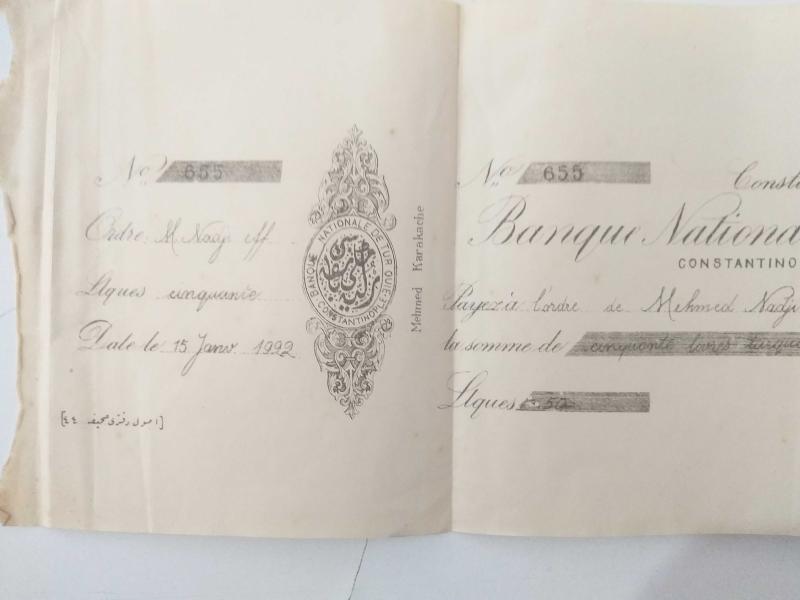 No 655
Ordre: M Nadji eff
Ltques cinquante
Date le 15 Janv 1922
[اصول دفتری صحیفه ٤٤]
BANQUE NATIONALE DE TURQUIE
CONSTANTINOPLE
Mehmed Karakache
No 655
Consta
Banque Nationa
CONSTANTINO
Payez à l'ordre de Mehmed Nadji
la somme de cinquante livres turque
Ltques 50